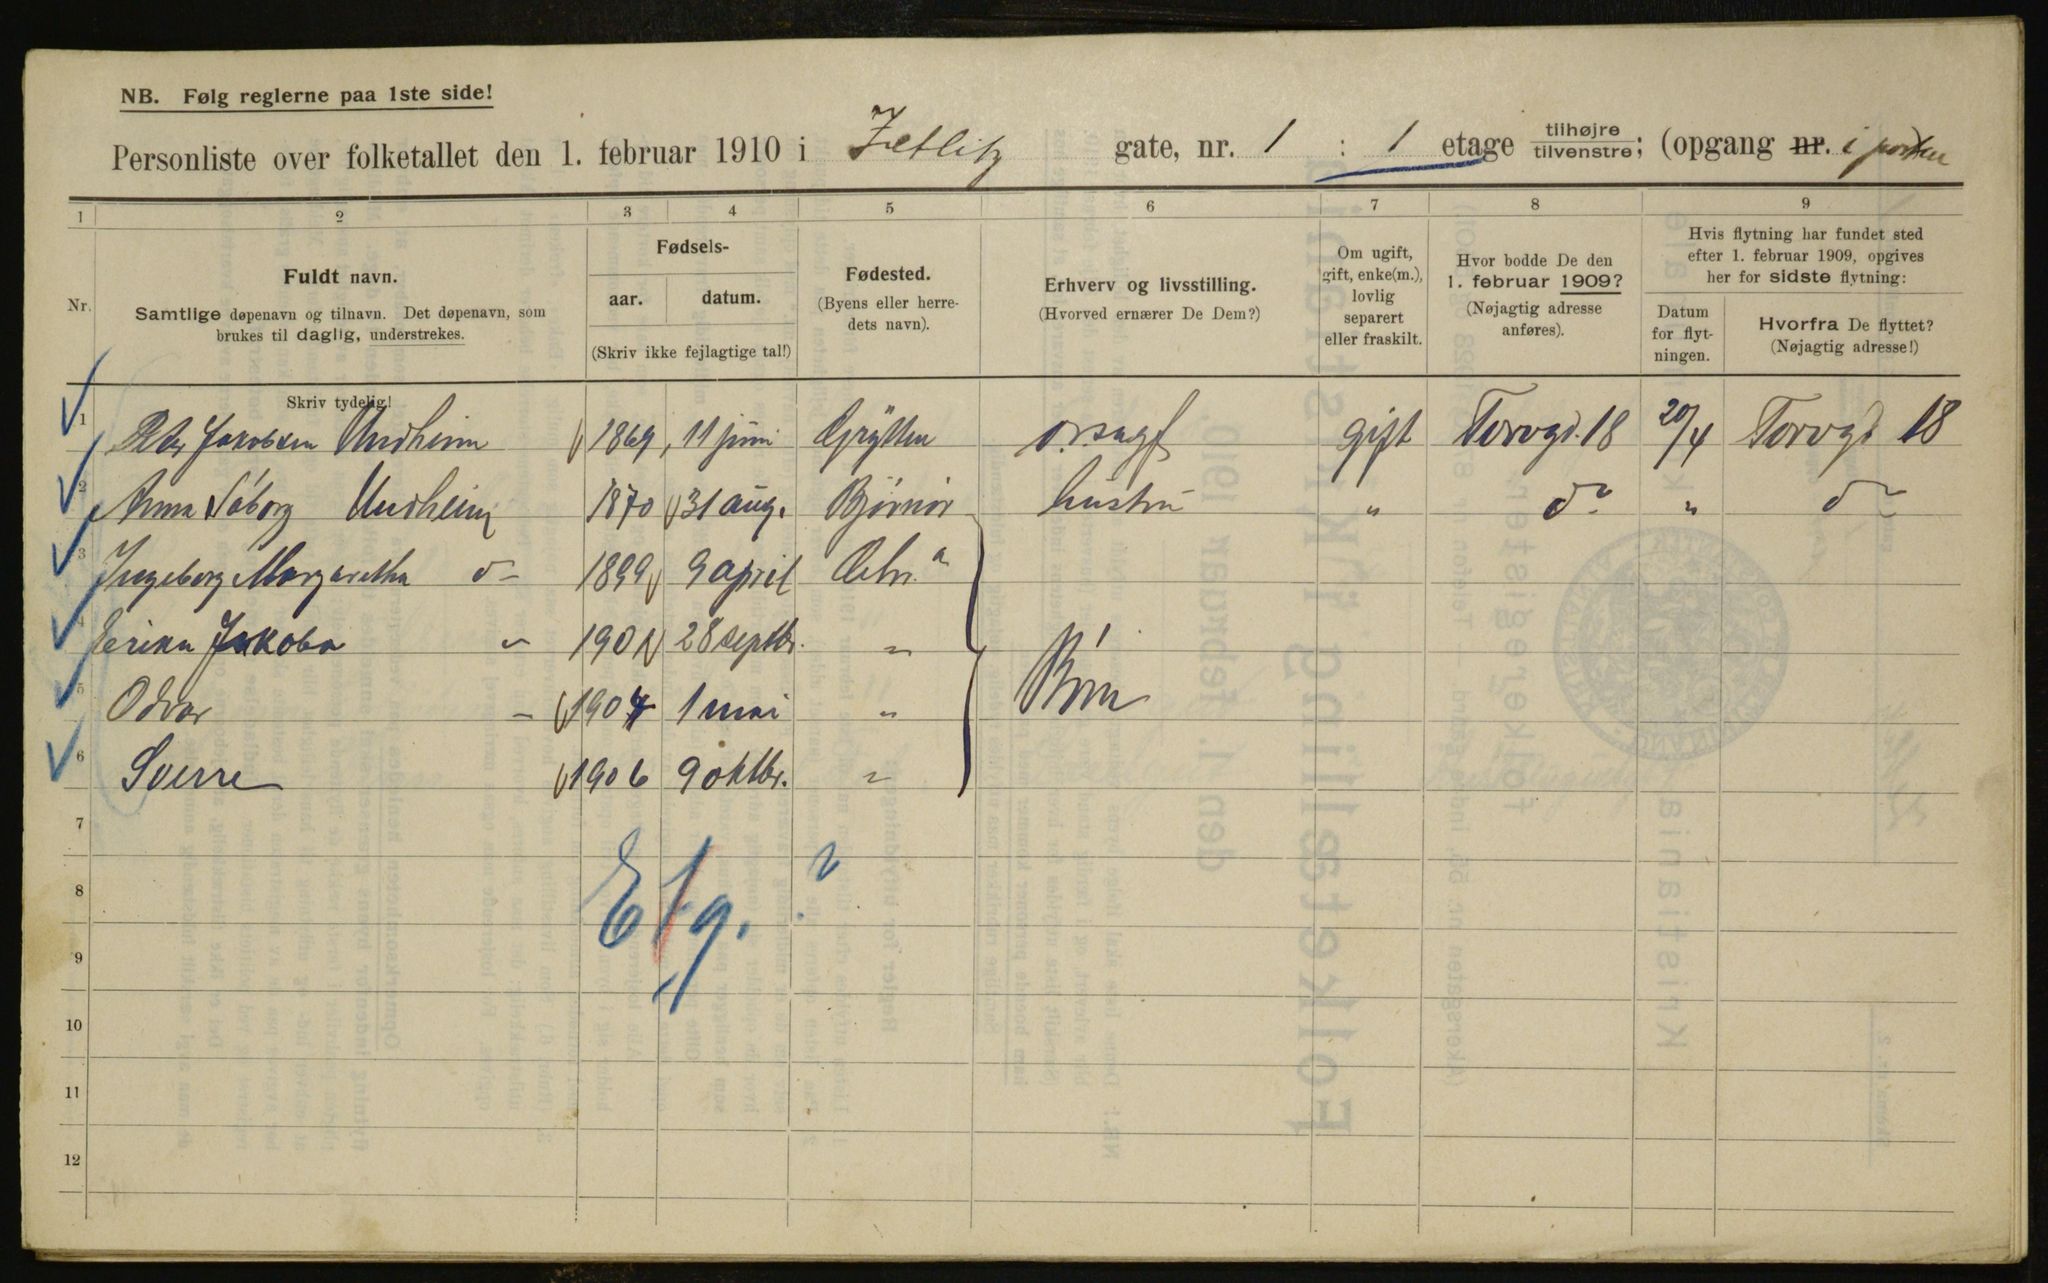 NB. Følg reglerne paa 1ste side!
Personliste over folketallet den 1. februar 1910 i Zetlitz gate, nr. 1 : 1 etage tilhøjre tilvenstre; (opgang nr. i porten
1 2 3 4 5 6 7 8 9
Nr.
Fuldt navn.
Samtlige døpenavn og tilnavn. Det døpenavn, som
brukes til daglig, understrekes.
Skriv tydelig!
Fødsels-
aar. datum.
(Skriv ikke fejlagtige tal!)
Fødested.
(Byens eller herre-
dets navn).
Erhverv og livsstilling.
(Hvorved ernærer De Dem?)
Om ugift,
gift, enke(m.),
lovlig
separert
eller fraskilt.
Hvor bodde De den
1. februar 1909?
(Nøjagtig adresse
anføres).
Hvis flytning har fundet sted
efter 1. februar 1909, opgives
her for sidste flytning:
Datum
for flyt-
ningen.
Hvorfra De flyttet?
(Nøjagtig adresse!)
1 Peter Jakobsen Undheim 1869 11 juni Grytten o.r.sagf gift Torvgd. 18 20/4 Torvgd 18
2 Anna Söborg Undheim 1870 31 aug. Bjørnør hustru " do " do
3 Ingeborg Margaretha d- 1899 9 april Chr.a
4 Jakoba - 1901 28 septbr. "
5 Odvar - 1904 1 mai " Børn
6 Sverre 1906 9 oktbr. "
7
8
9
10
11
12